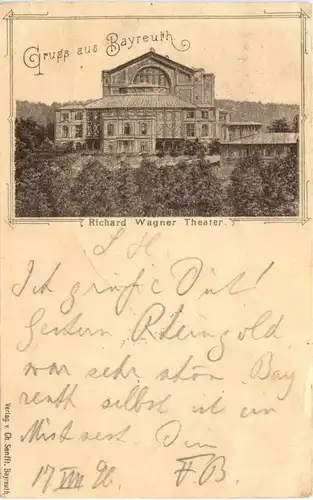 Gruss aus Bayreuth
Richard Wagner Theater.
L H.
Ich grüße Dich!
Gestern Rheingold,
war sehr schön. Bay
reuth selbst ist ein
Mistnest. Dein
17 VIII 96. F.B.
Verlag v. Ch. Senfft, Bayreuth.